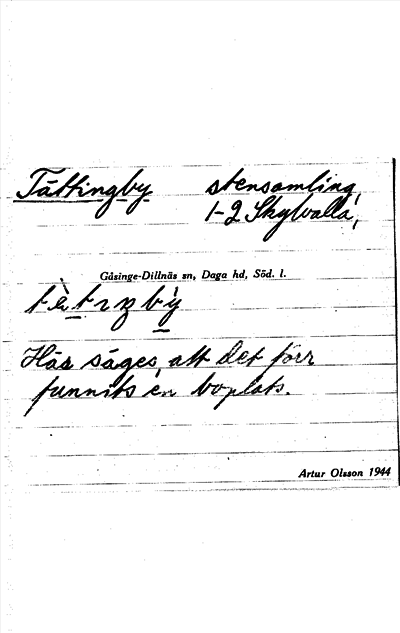 Tättingby stensamling,
1-2 Skyvalla,
Gåsinge-Dillnäs sn, Daga hd, Söd. l.
Här säges, att det förr
funnits en boplats.
Artur Olsson 1944